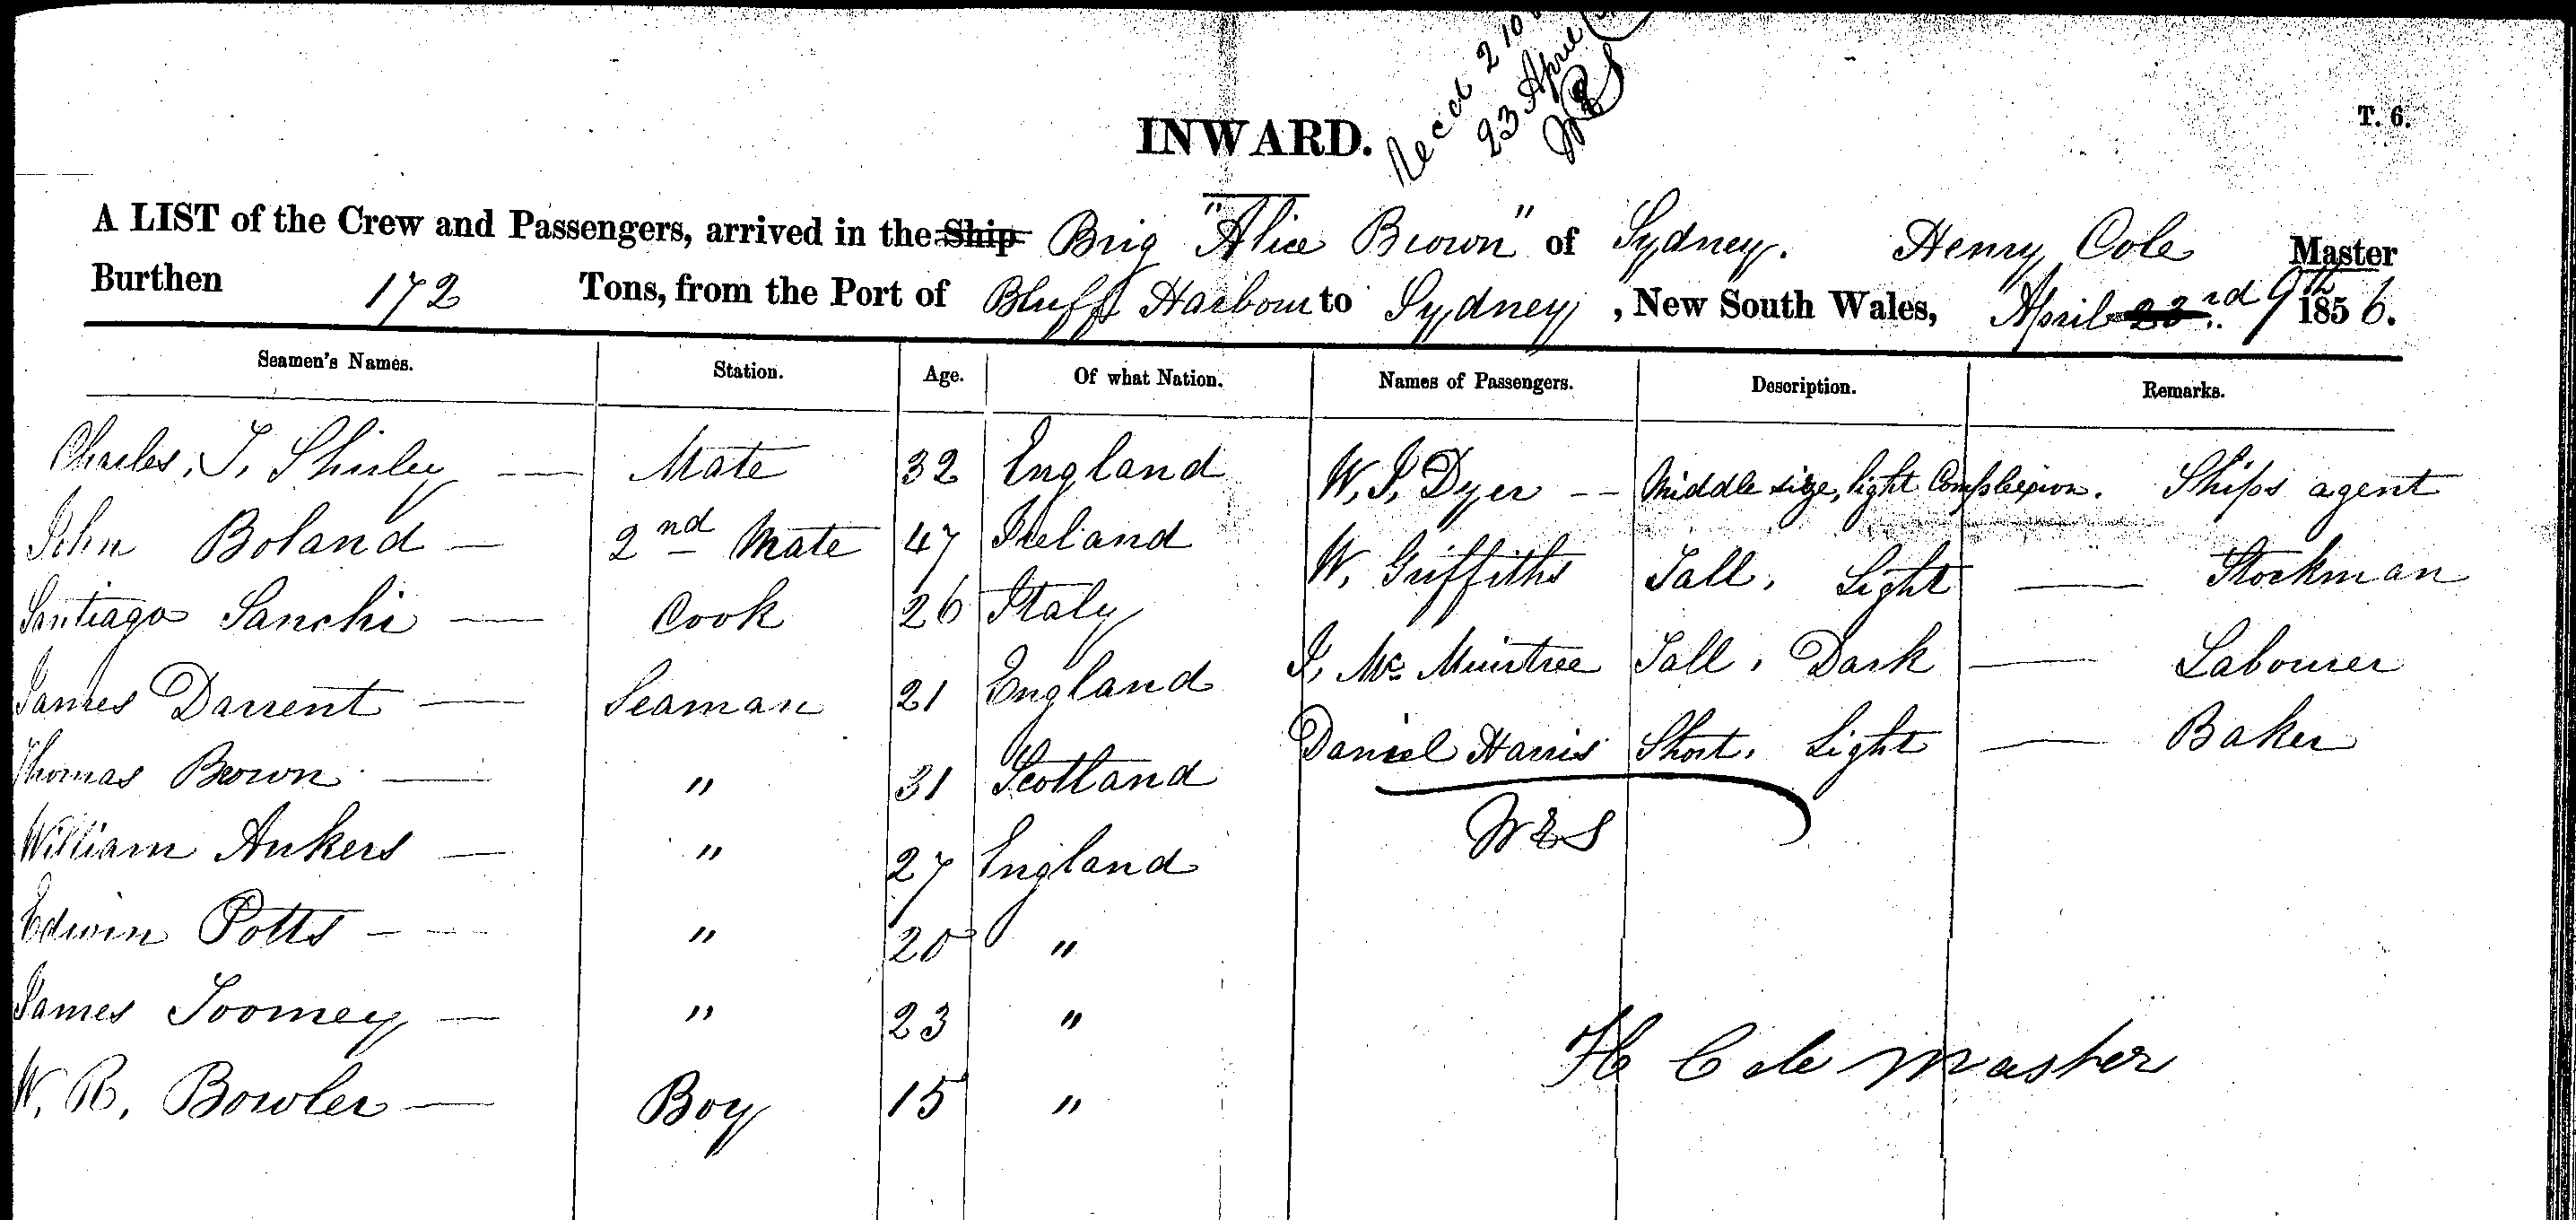 Recd 210
23 April
INWARD.
T. 6.
A LIST of the Crew and Passengers, arrived in the Ship Brig "Alice Brown" of Sydney. Henry Cole Master
Burthen 172 Tons, from the Port of Bluff Harbour to Sydney, New South Wales, April 23rd 9th 1856.
Seamen's Names. Station. Age. Of what Nation. Names of Passengers. Description. Remarks.
Charles. T. Shirley — Mate 32 England W. J. Dyer -- Middle size, light Complexion. Ships agent
John Boland — 2nd Mate 47 Ireland W. Griffiths Tall, Light — Stockman
Santiago Sanchi — Cook 26 Italy J. Mc Muirtree Tall, Dark — Labourer
James Darrent — Seaman 21 England Daniel Harris Short, Light — Baker
Thomas Brown — " 31 Scotland
William Ankers — " 27 England
Edwin Potts — " 20 "
James Toomey — " 23 "
W. R. Bowler — Boy 15 "
H Cole Master